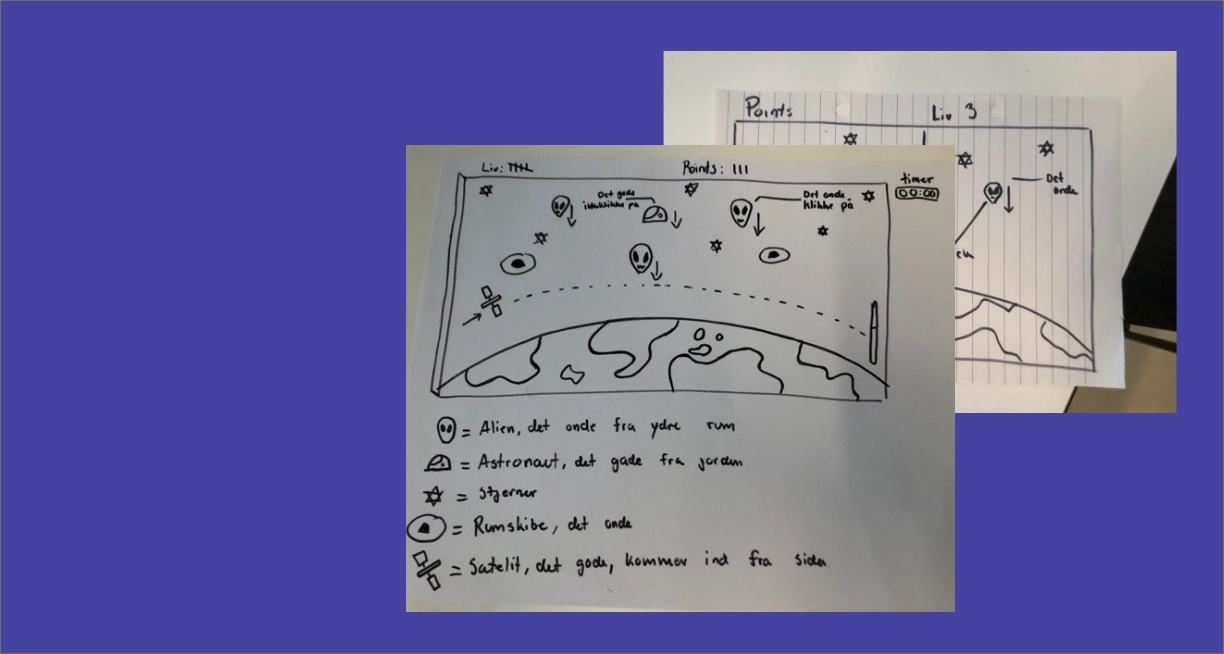 Points Liv 3
Det onde
Liv: Points: III timer
00:00
Det gode
ikke klikke på
Det onde
klikke på
= Alien, det onde fra ydre rum
= Astronaut, det gode fra jorden
= Stjerner
= Rumskibe, det onde
= Satelit, det gode, kommer ind fra siden